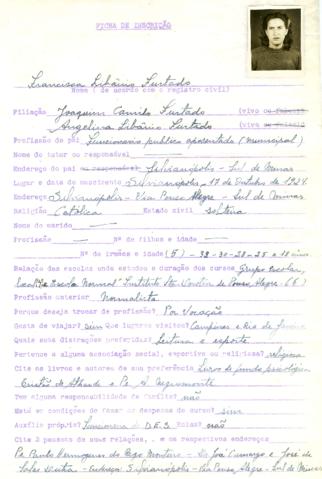 FICHA DE INSCRIÇÃO
Francisca Libânio Furtado
Nome (de acordo com o registro civil)
Filiação Joaquim Camilo Furtado (vivo ou falecido
Angelina Libânio Furtado (viva ou falecida
Profissão do pai funcionario publico aposentado (municipal)
Nome do tutor ou responsavel
Endereço do pai ou responsavel Silvianópolis - Sul de Minas
Lugar e data do nascimento Silvianopolis, 17 de Outubro de 1924.
Endereço Silvianopolis - Via Pouso Alegre - Sul de Minas
Religião Católica Estado civil solteira
Nome do marido
Profissão Nº de filhos e idade
Nº de irmãos e idade (5) - 33-30-28-25 e 18 anos
Relação das escolas onde estudou e duração dos cursos Grupo escolar,
local e Escola Normal Instituto Sta. Dorotéa de Pouso Alegre
Profissão anterior Normalista
Porque deseja trocar de profissão? Por Vocação
Gosta de viajar? sim Que lugares visitou? Campinas e Rio de Janeiro
Quais suas distrações preferidas? Leitura e esporte
Pertence a alguma associação social, esportiva ou religiosa? religiosa
Cite os livros e autores de sua preferência Livros de fundo psicologico
Tristão de Athayde e Pe.
Tem alguma responsabilidade de família? não
Está em condições de fazer as despesas do curso? sim
Auxílio próprio? funcionaria do D.E.S. Bolsa? não
Cite 2 pessoas de suas relações, e os respectivos endereços
Pe. Paulo Hermogenes do Rego Monteiro - Dr. José Camargo e José de
Sales - Endereço: Silvianópolis - Via Pouso Alegre - Sul de Minas